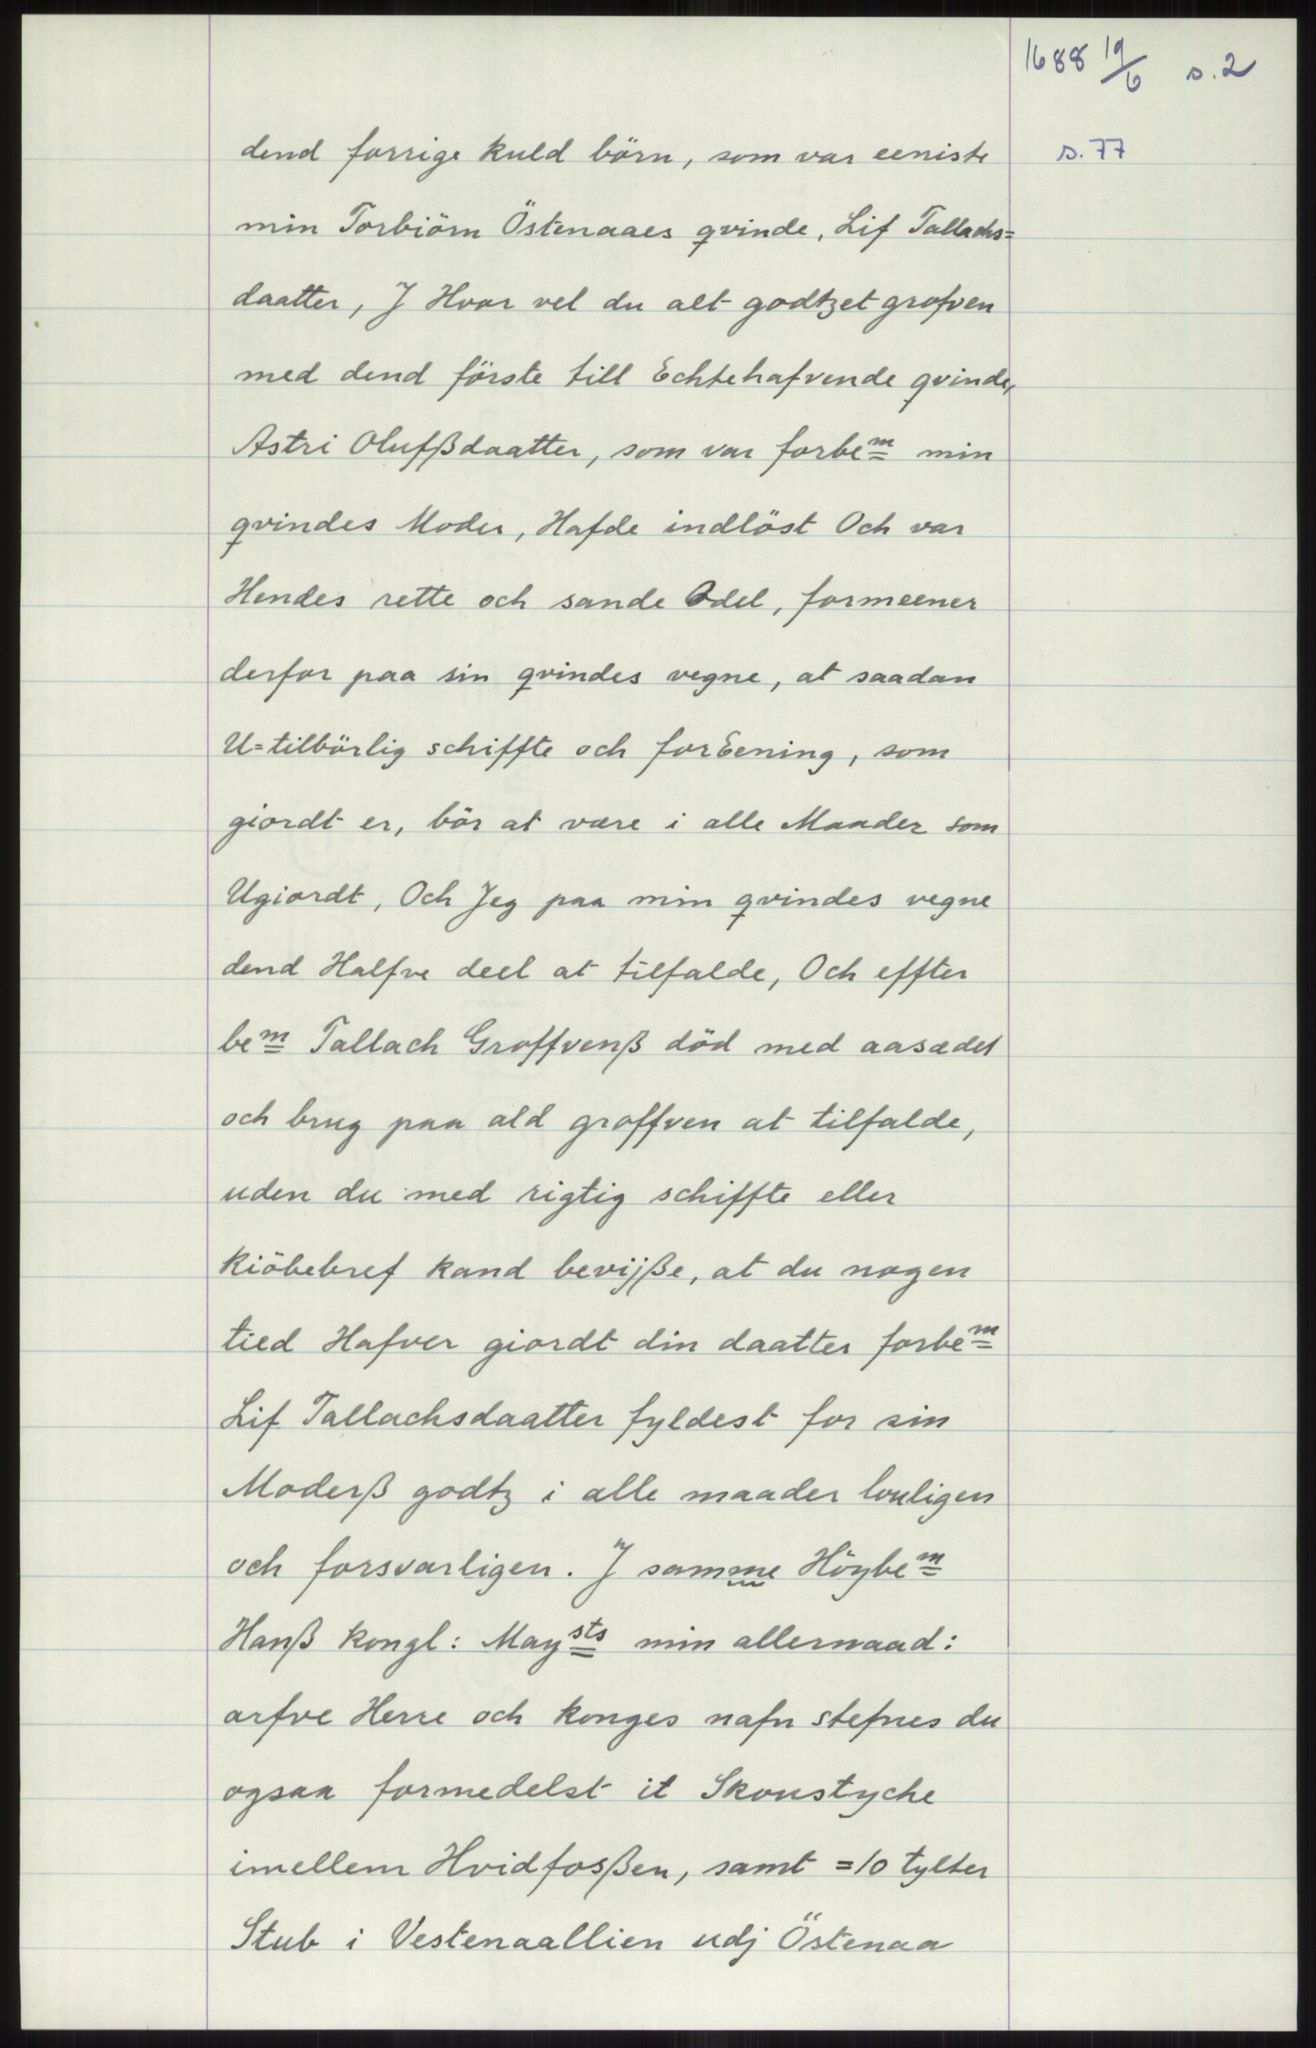 1688 19/6 s. 2
dend forrige kuld börn, som var eeniste
s. 77
min Torbiörn Östenaaes qvinde, Lif Tallachs=
daatter, J Hvor vel du alt godtzet grofven
med dend förste till Echtehafvende qvinde,
Astri Olufßdaatter, som var forbem min
qvindes Moder, Hafde indlöst Och var
Hendes rette och sande Odel, formeener
derfor paa sin qvindes vegne, at saadan
U=tilbörlig schiffte och forEening, som
giordt er, bör at være i alle Maader som
Ugiordt, Och Jeg paa min qvindes vegne
dend Halfve deel at tilfalde, Och effter
bem Tallach Groffvenß död med aasædet
och brug paa ald groffven at tilfalde,
uden du med rigtig schiffte eller
kiöbebref kand bevijße, at du nogen
tied Hafver giordt din daatter forbem
Lif Tallachsdaatter fyldest for sin
Moderß godtz i alle maader louligen
och forsvarligen. J samme Höybem
Hanß kongl: Maysts min allernaad:
arfve Herre och konges nafn stefnes du
ogsaa formedelst it Skoustyche
imellem Hvidfosßen, samt =10 tylter
Stub i Vestenaallien udj Östenaa